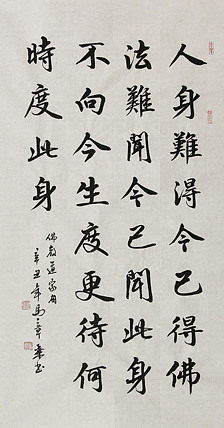 人身難得今已得佛
法難聞今已聞此身
不向今生度更待何
時度此身
佛教道家句
辛丑年馬